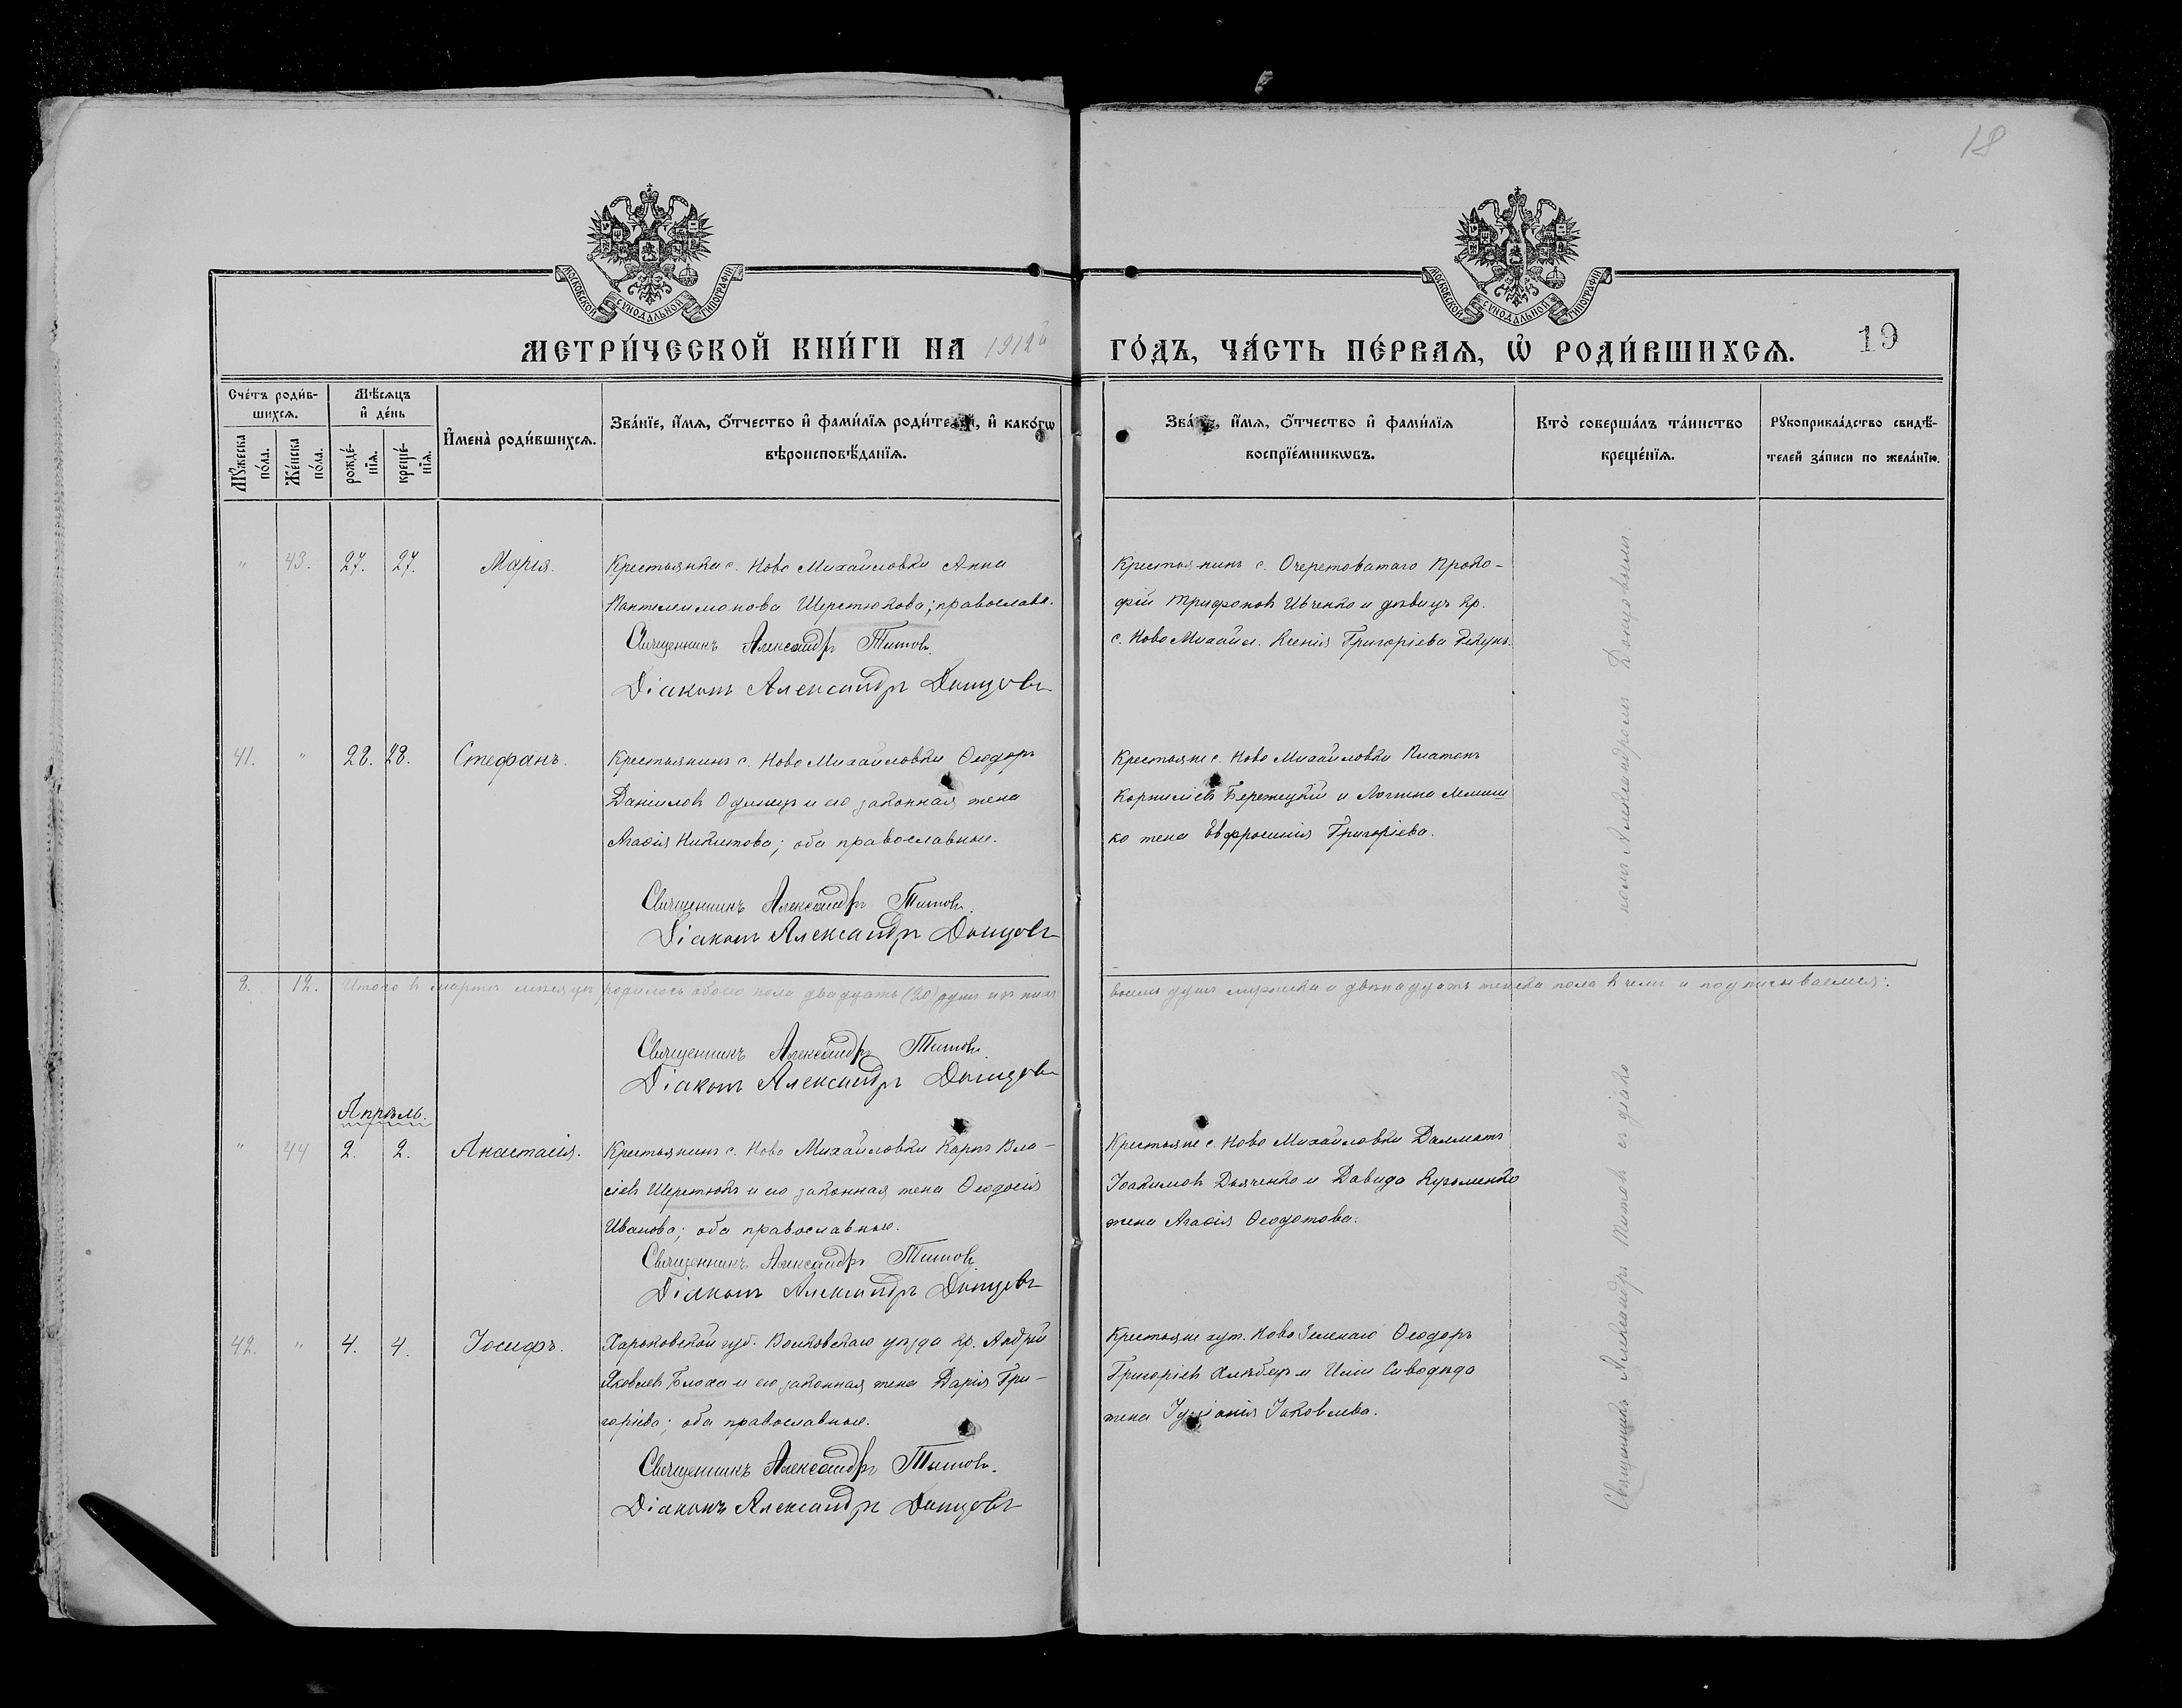 18
МОСКОВСКОЙ СУНОДАЛЬНОЙ ТИПОГРАФІИ
МОСКОВСКОЙ СУНОДАЛЬНОЙ ТИПОГРАФІИ
МЕТРИ́ЧЕСКОЙ КНИ́ГИ НА 1912й ГО́ДЪ, ЧА́СТЬ ПЕ́РВАѦ, Ѡ҆ РОДИ́ВШИХСѦ. 19
Сче́тъ роди́в-
шихсѧ.
Мꙋ́жеска по́ла.
Же́нска по́ла.
Мѣ́сѧцъ
и҆ де́нь
рожде́-
нїѧ.
креще́-
нїѧ.
И҆мена̀ роди́вшихсѧ.
Зва́нїе, и҆́мѧ, ѻ҆́тчество и҆ фами́лїѧ роди́телей, и҆ како́гѡ
вѣроисповѣ́данїѧ.
Зва́нїе, и҆́мѧ, ѻ҆́тчество и҆ фами́лїѧ
воспрїе́мникѡвъ.
Кто̀ соверша́лъ та́инство
креще́нїѧ.
Рꙋкоприкла́дство свидѣ́-
телей за́писи по жела́нїю.
" 43. 27. 27. Марія.
Крестьянка с. Ново Михайловки Анна
Пантелеимонова Шерстюкова; православн.
Священникъ Александръ Титовъ.
Діаконъ Александръ Донцовъ
Крестьянинъ с. Очеретоватаго Проко-
фій Трифоновъ Ивченко и дѣвица кр.
с. Ново Михайл. Ксенія Григоріева Рекунъ.
41. " 28. 28. Стефанъ.
Крестьянинъ с. Ново Михайловки Ѳеодоръ
Даніиловъ Одинецъ и его законная жена
Агаѳія Никитова; оба православные.
Священникъ Александръ Титовъ.
Діаконъ Александръ Донцовъ
Крестьяне с. Ново Михайловки Платонъ
Корниліевъ Бережецкій и Логина Меми
ко жена Евфросинія Григоріева.
8. 12. Итого въ мартѣ мѣсяцѣ родилось обоего пола двадцать (20) душъ изъ нихъ
восемь душъ мужеска и двѣнадцать женска пола въ чемъ и подписываемся:
Священникъ Александръ Титовъ.
Діаконъ Александръ Донцовъ
Апрѣль.
" 44 2. 2. Анастасія.
Крестьянинъ с. Ново Михайловки Карпъ Вла-
сіевъ Шерстюкъ и его законная жена Ѳеодосія
Иванова; оба православные.
Священникъ Александръ Титовъ.
Діаконъ Александръ Донцовъ
Крестьяне с. Ново Михайловки Далматъ
Іоакимовъ Дьяченко и Давида Кузьменко
жена Агаѳія Ѳеодотова.
42. " 4. 4. Іосифъ.
Харьковской губ. Волковскаго уѣзда кр. Андрей
Яковлевъ Блоха и его законная жена Дарія Гри-
горіева; оба православные.
Священникъ Александръ Титовъ.
Діаконъ Александръ Донцовъ
Крестьяне хут. Ново Зеленаго Ѳеодоръ
Григоріевъ Хлѣбецъ и Иліи Сиводѣда
жена Іуліанія Іаковлева.
Священникъ Александръ Титовъ съ діако
номъ Александромъ Донцовымъ.